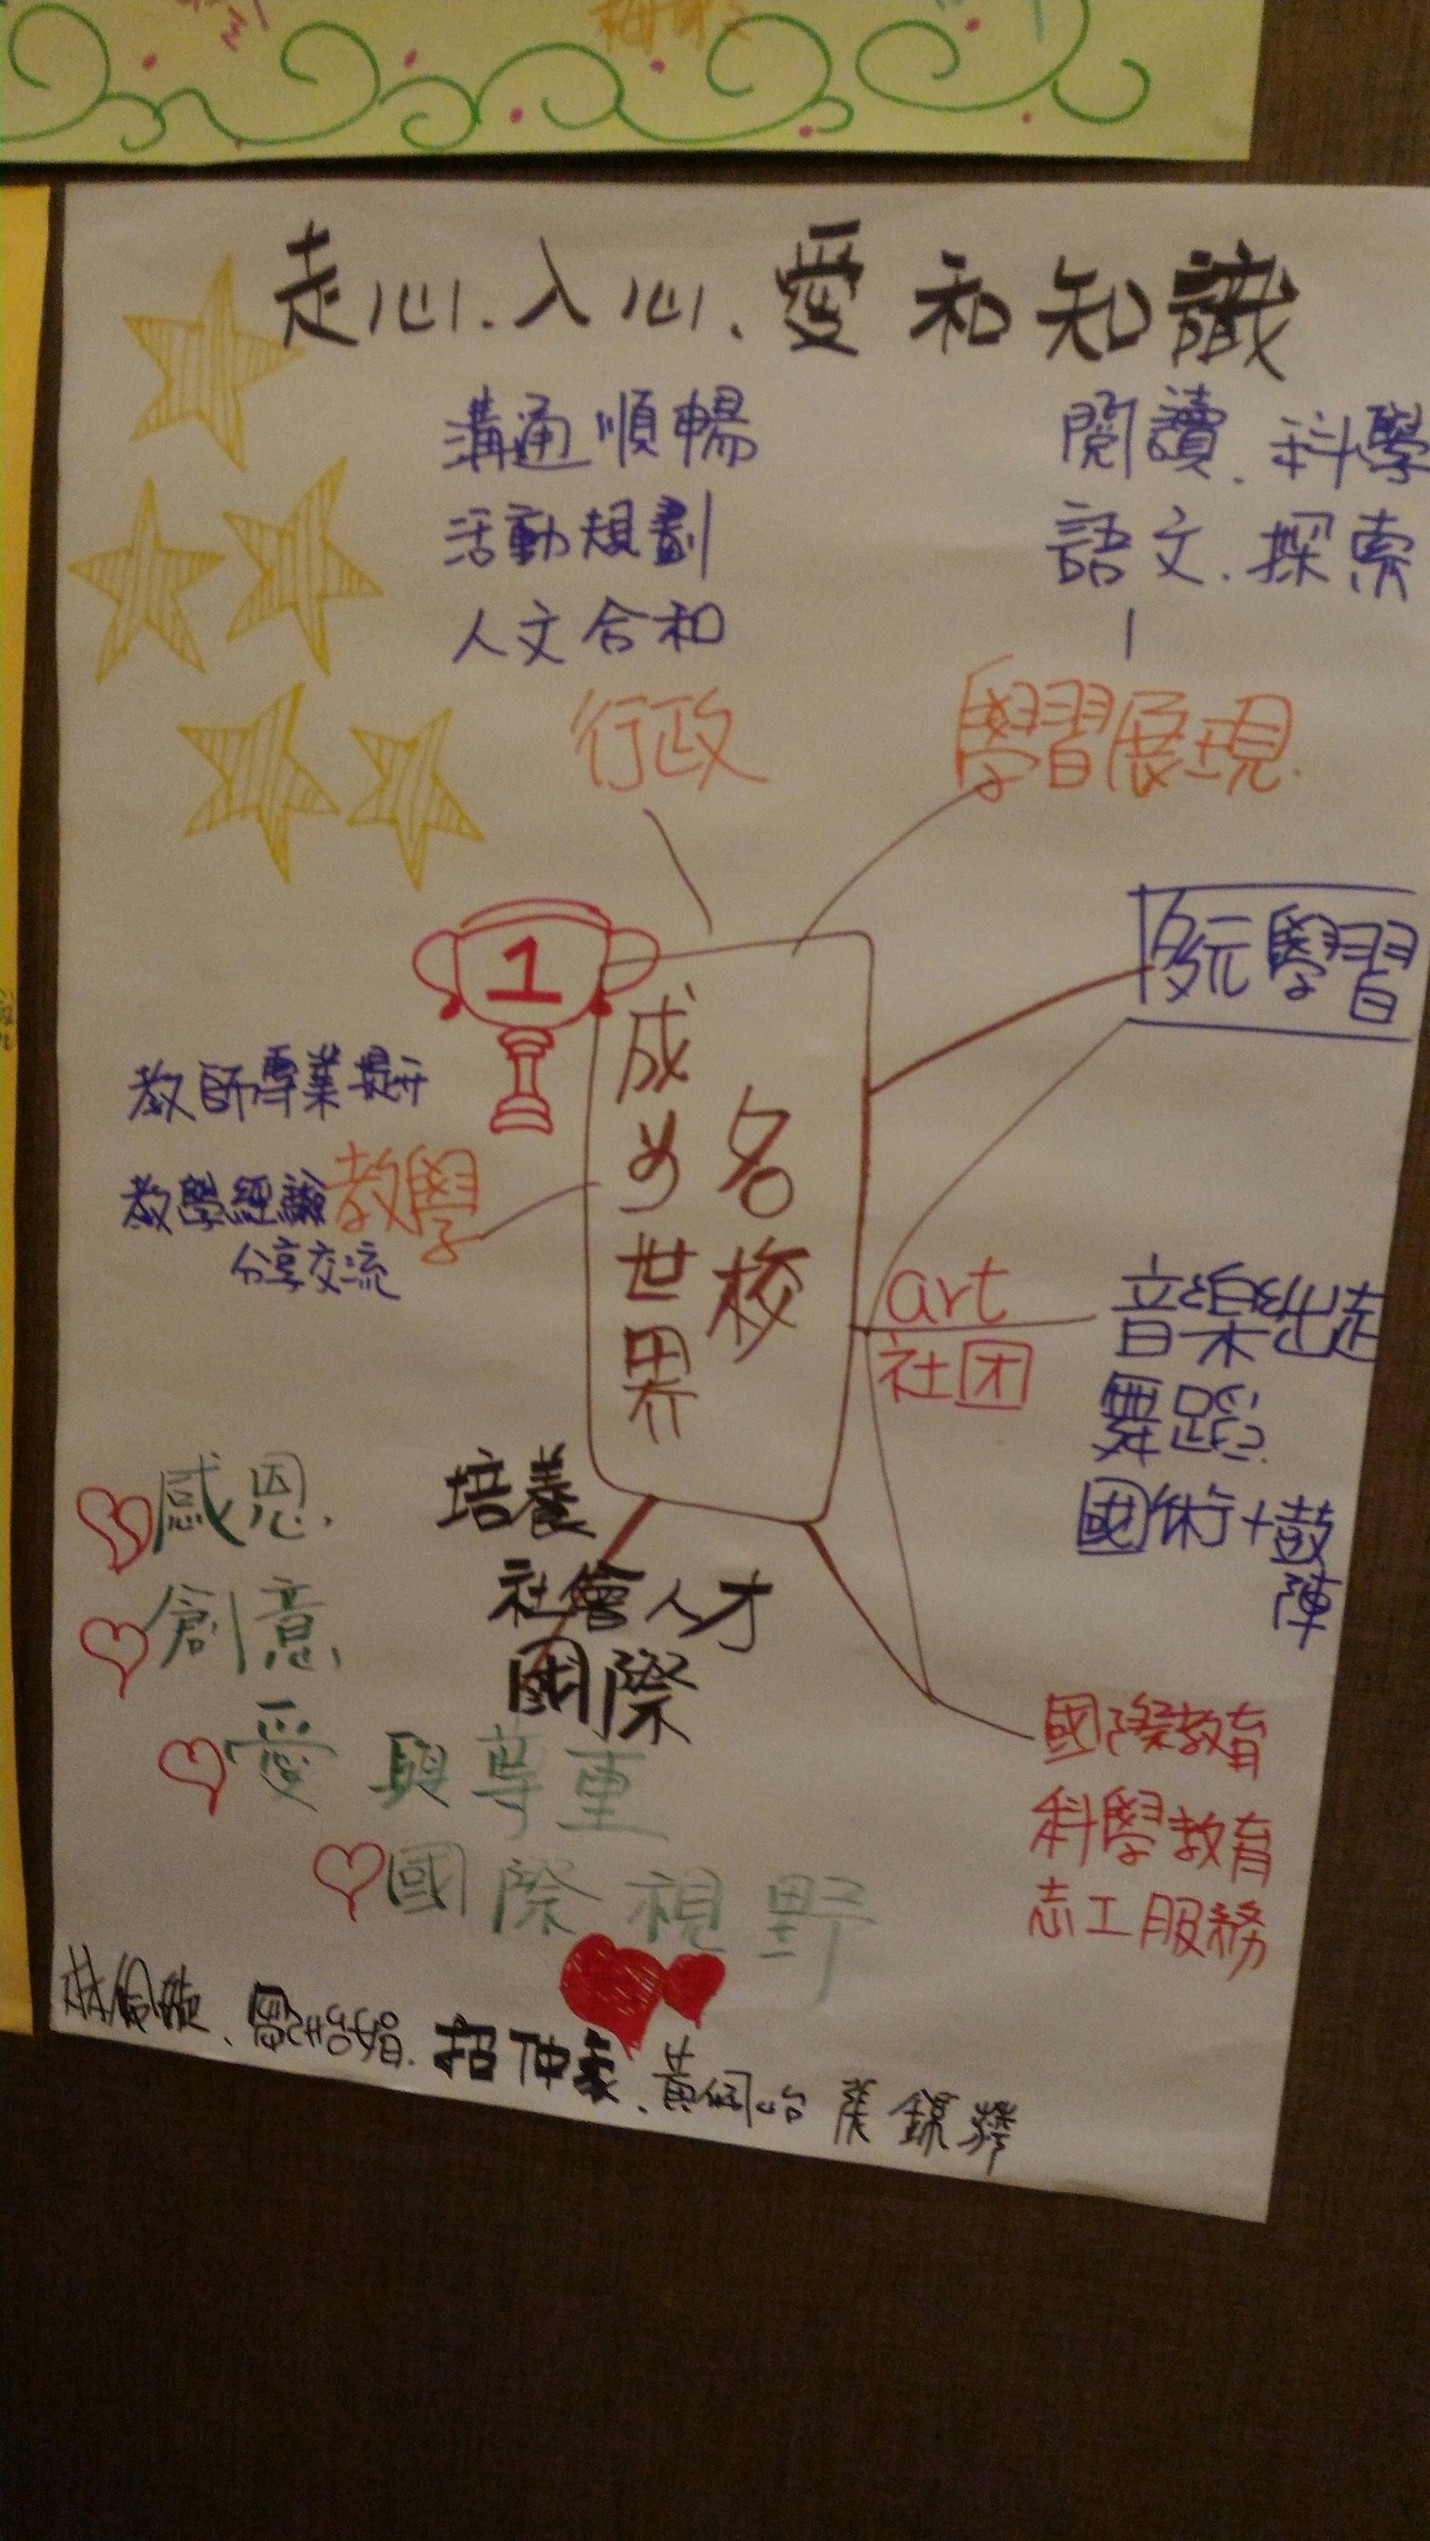 走心.入心、愛和知識
溝通順暢
活動規劃
人文合和
行政
閱讀.科學
語文.探索
學習展現.
多元學習
1
成為世界
名校
教師專業提升
教學經驗
分享交流
教學
art
社团
音樂出走
舞蹈
國術+鼓
陣
國際教育
科學教育
志工服務
培養
社會人才
國際
感恩.
創意.
愛與尊重
國際視野
招仲豪、黃